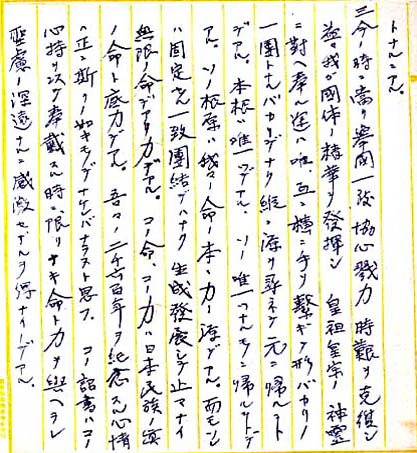 トナルニアル。
三、今ノ時ニ當リ擧國一致協心戮力時艱ヲ克復シ
益々我ガ國体ノ精華ヲ發揮シ 皇祖皇宗ノ神霊
ニ對ヘ奉ル途ハ唯、互ニ横ニ手ヲ繋ギ形バカリノ
一團トナルバカリデナク縦ニ深ク尋ネテ元ニ帰ルコト
デアル。本根ハ唯一ツデアル。ソノ唯一ツナルモノニ帰ルコトデ
アル。ソノ根原ハ我々ノ命ノ本、力ノ源デアル。而モソレ
ハ固定セル一致團結デハナク生成發展シテ止マナイ
無限ノ命デアリ力デアル。コノ命、コノ力ハ日本民族ノ
ノ命ト底力デアル。吾々ノ二千六百年ヲ紀念スル心情
ハ正ニ斯クノ如キモノデナケレバナラヌト思フ。コノ詔書ハコノ
心持ヲ以テ奉戴スル時ニ限リナキ命ト力ヲ與ヘラレ
聖慮ノ深遠ナルニ感激セザルヲ得ナイノデアル。